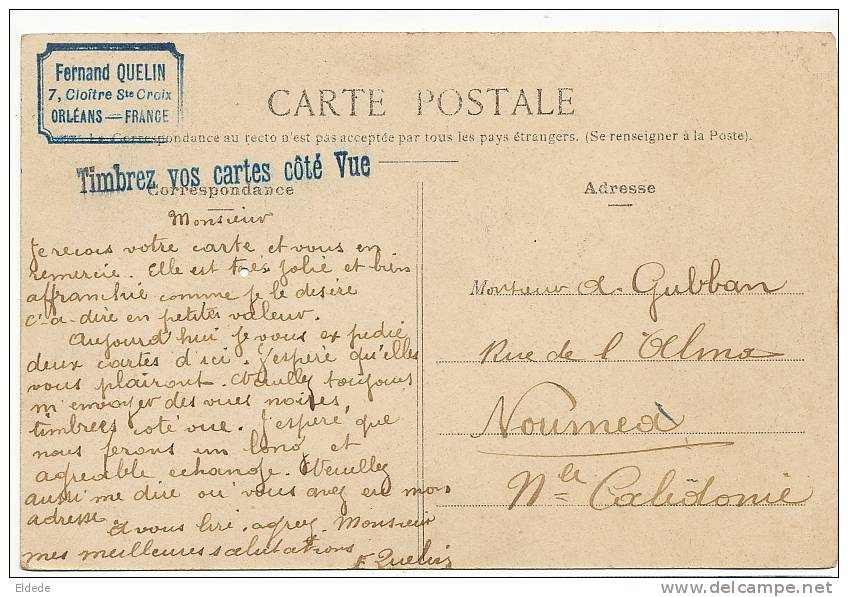 Fernand QUELIN
7, Cloître Ste Croix
ORLÉANS — FRANCE
CARTE POSTALE
La Correspondance au recto n'est pas acceptée par tous les pays étrangers. (Se renseigner à la Poste).
Timbrez vos cartes côté Vue
Correspondance
Monsieur
Je recois votre carte et vous en
remercie. Elle est très jolie et bien
affranchie comme je le desire
c'-a-dire en petites valeur.
Aujourd'hui je vous expedie
deux cartes d'ici. J'espere qu'elles
vous plairont. Veuillez toujours
m'envoyer des vues noires,
timbrees coté vue. J'espere, que
nous ferons un long et
agreable echange. Veuillez
aussi me dire où vous avez eu mon
adresse
A vous lire, agreez Monsieur
mes meilleures salutations
F Quelin
Adresse
Monsieur A. Gubban
Rue de l'Alma
Noumea
Nle Calédonie
Eldede
delcampe.net